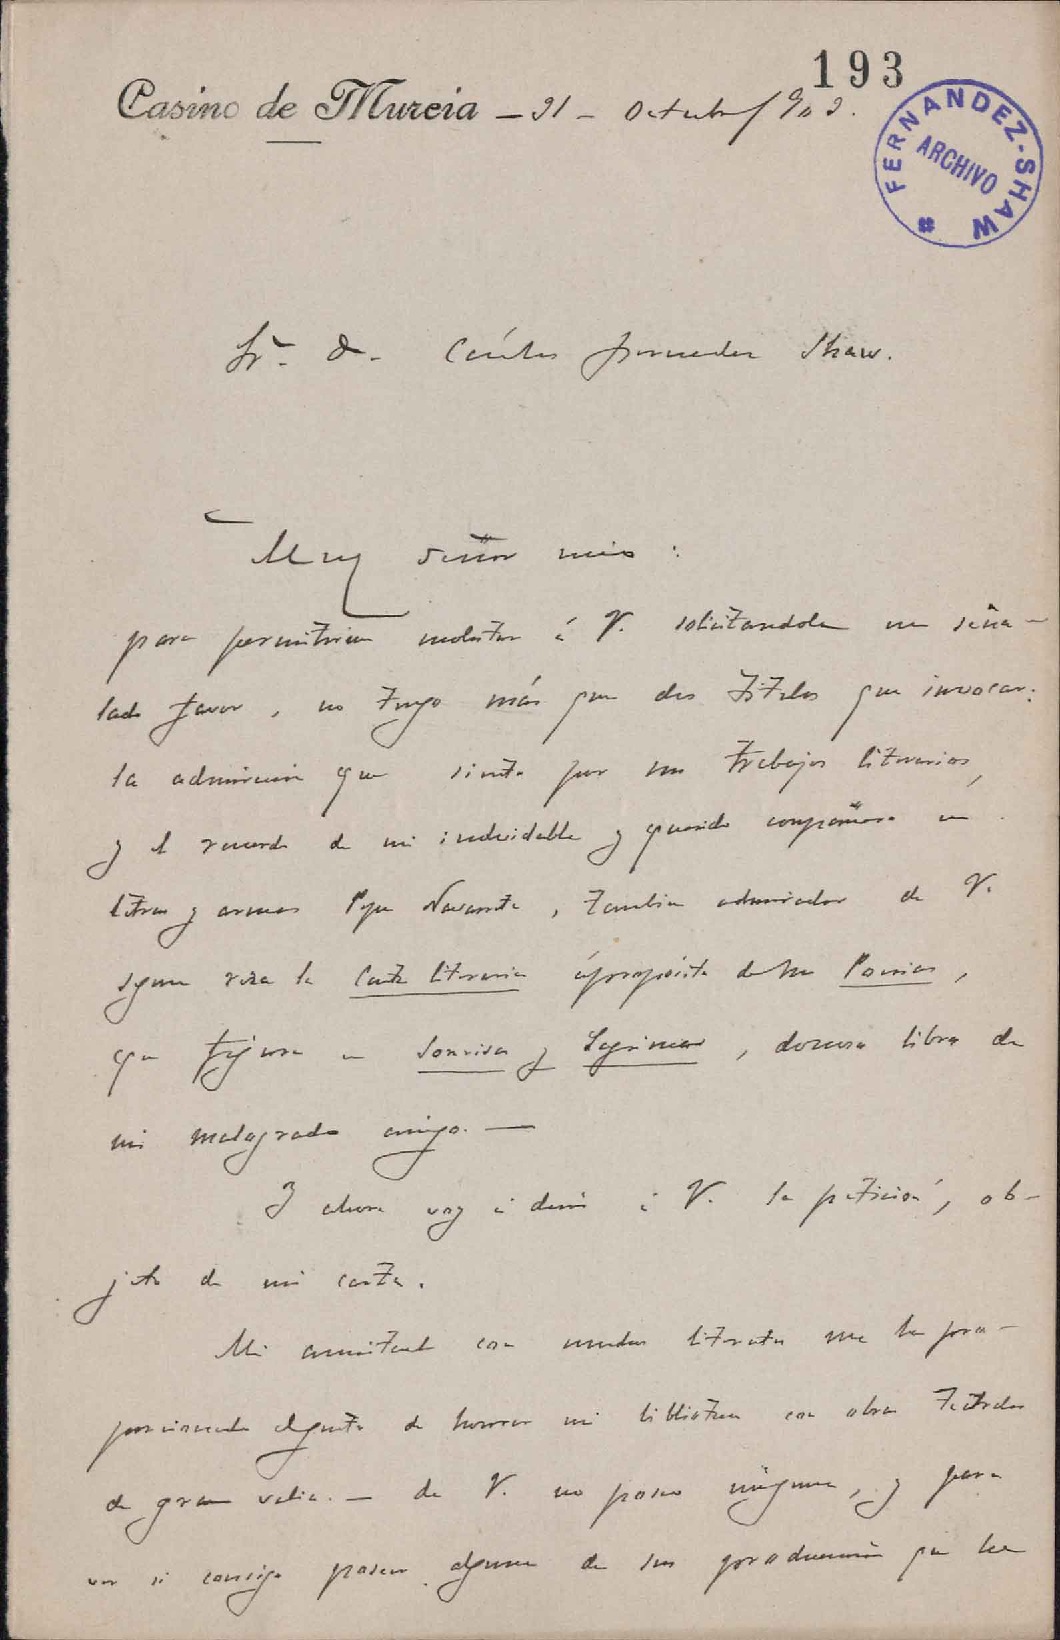 193
Casino de Murcia - 31 - Octubre/903.
FERNANDEZ-SHAW
ARCHIVO
Sr. D. Cárlos Fernandez Shaw.
Muy señor mio:
para permitirme molestar á V. solicitandole un seña-
lado favor, no tengo más que dos titulos que invocar:
la admiracion que siento por sus trabajos literarios,
y el recuerdo de mi inolvidable y querido compañero en
letras y armas Pepe Navarrete, tambien admirador de V.
segun reza la Carta literaria ápropósito de sus Poesias,
que figura en Sonrisas y Lagrimas, donoso libro de
mi malogrado amigo. —
Y ahora voy á decir á V. la peticion, ob-
jeto de mi carta.
Mi amistad con muchos literatos me ha pro-
porcionado el gusto de honrar mi biblioteca con obras
de gran valia. — de V. no poseo ninguna, y para
ver si consigo poseer alguna de sus producciones que he